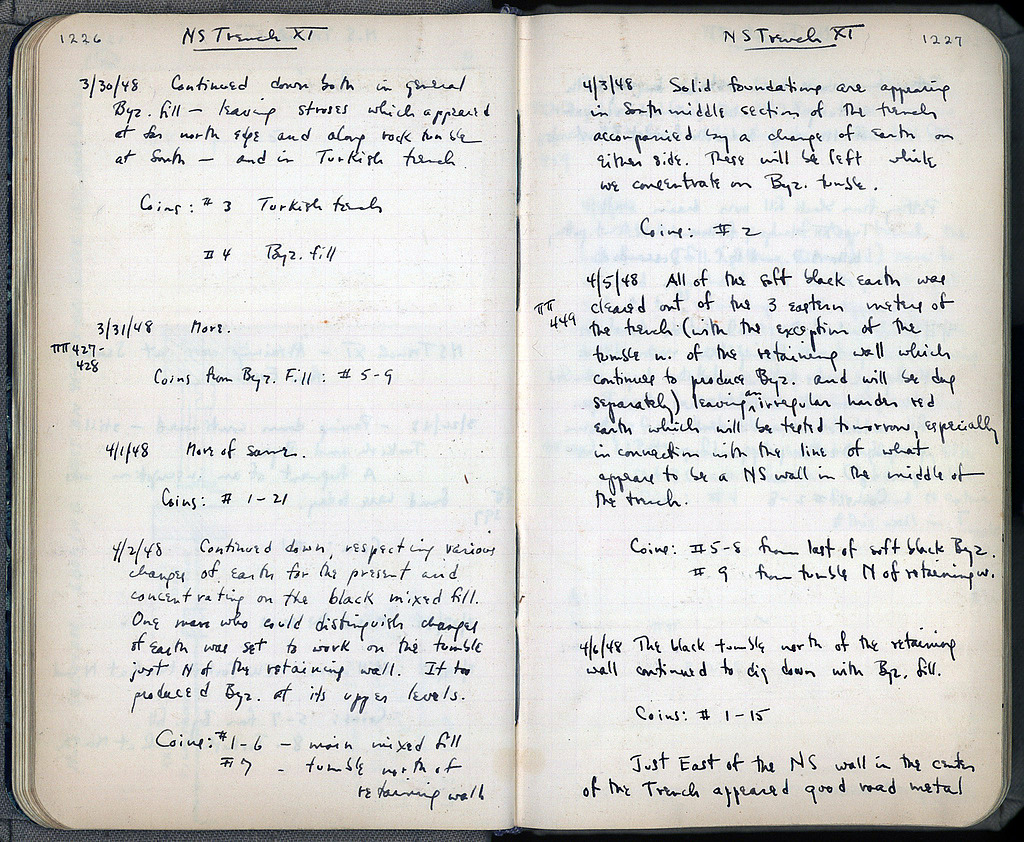 1226 NS Trench XI
3/30/48 Continued down both in general
Byz. fill – leaving stroses which appeared
at far north edge and along rock tumble
at South – and in Turkish trench.
Coins: # 3 Turkish trench
# 4 Byz. fill
3/31/48 More.
ΠΠ 427-
428
Coins from Byz. Fill: # 5-9
4/1/48 More of same.
Coins: # 1-21
4/2/48 Continued down, respecting various
changes of earth for the present and
concentrating on the black mixed fill.
One man who could distinguish changes
of earth was set to work on the tumble
just N of the retaining wall. It too
produced Byz. at its upper levels.
Coins: # 1-6 – main mixed fill
# 7 – tumble north of
retaining wall
NS Trench XI 1227
4/3/48 Solid foundations are appearing
in South middle section of the trench
accompanied by a change of earth on
either side. These will be left while
we concentrate on Byz. tumble.
Coins: # 2
4/5/48 All of the soft black earth was
ΠΠ
449
cleared out of the 3 eastern meters of
the trench (with the exception of the
tumble n. of the retaining wall which
continues to produce Byz. and will be dug
separately) leaving an irregular harder red
earth which will be tested tomorrow, especially
in connection with the line of what
appears to be a NS wall in the middle of
the trench.
Coins: # 5-8 from last of soft black Byz.
# 9 from tumble N of retaining w.
4/6/48 The black tumble north of the retaining
wall continued to dig down with Byz. fill.
Coins: # 1-15
Just East of the NS wall in the center
of the Trench appeared good road metal